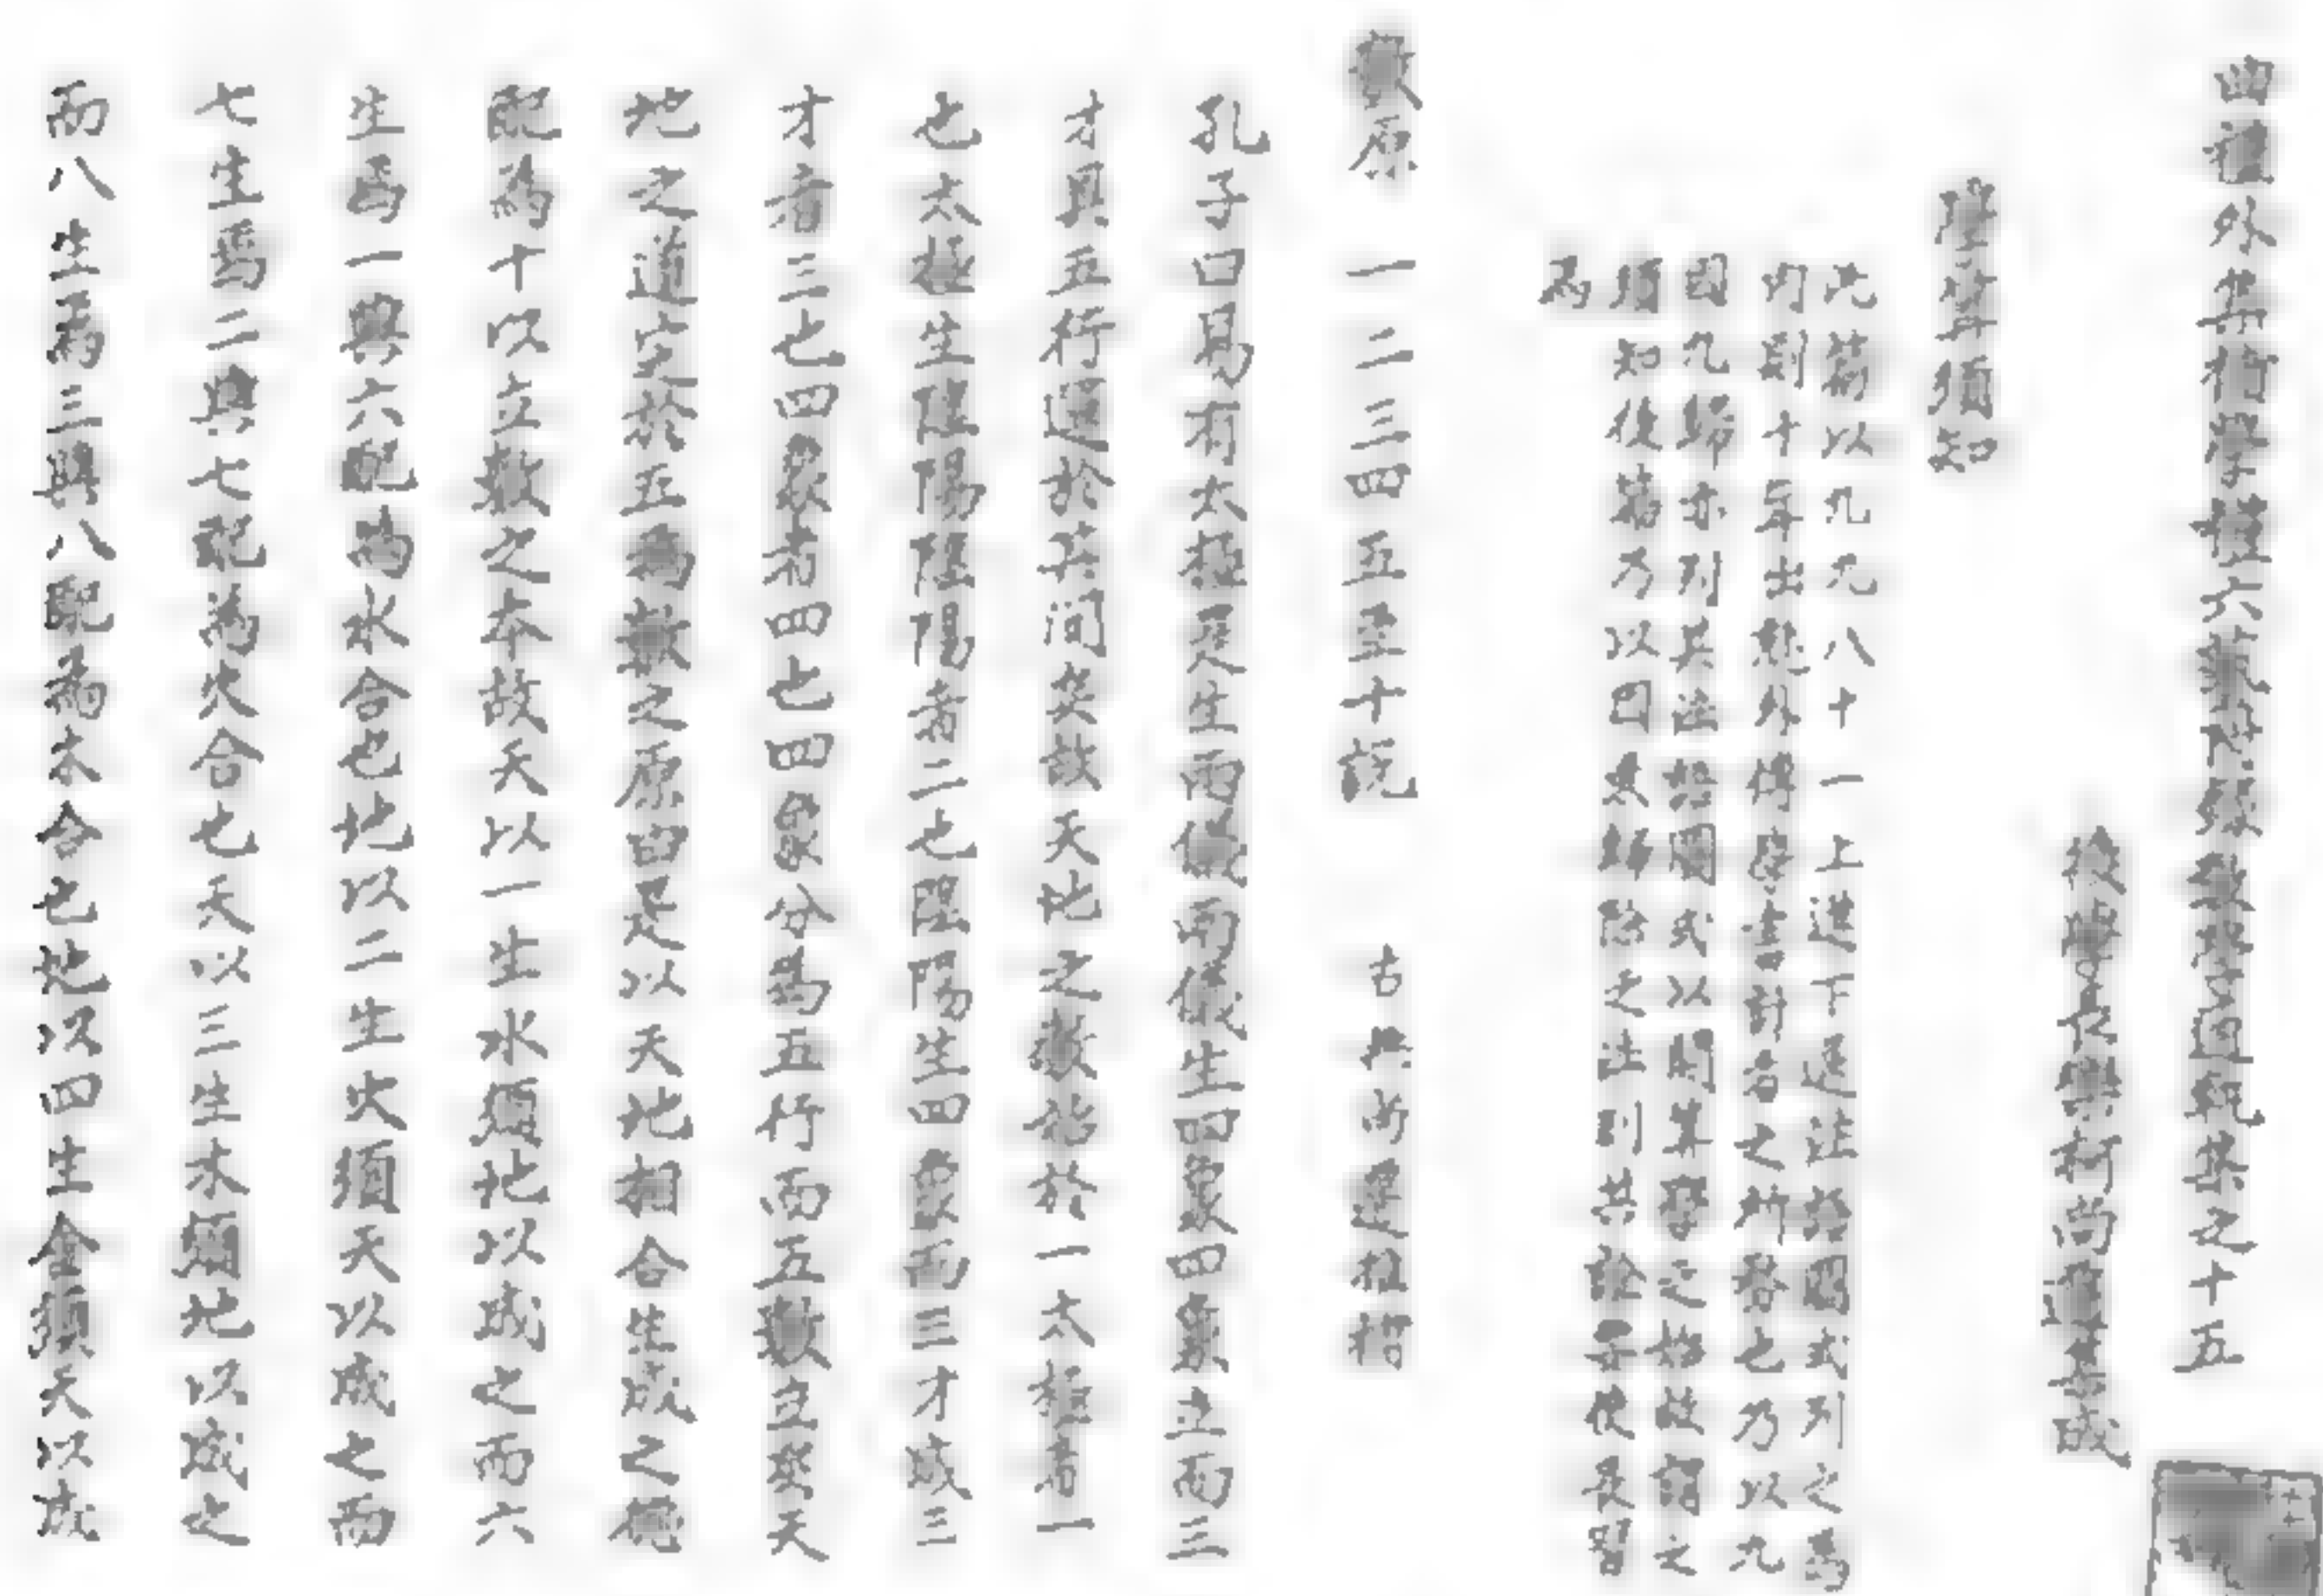 曲禮外集補學禮六藝附錄數學通軌集之十五
後學長樂柯尚遷集成
習算須知
此篇以九九八十一上進下退法於圖式列之為
內則十年出就外傅學書計者之所務也乃以九
因九歸亦列其法於圖式以開算學之始故謂之
須知後篇乃以因乘歸除之法則共論云使長習
焉
數原 一二三四五至十說 古
孔子曰易有太極是生兩儀兩儀生四象四象立而三
才具五行運於其間矣故天地之數始於一太極者一
也太極生陰陽陰陽者二也陰陽生四象而三才成三
才者三也四象者四也四象分為五行而五數立矣天
地之道定於五為數之原由是以天地相合生成之德
配為十以立數之本故天以一生水須地以成之而六
生焉一與六配為水合也地以二生火須天以成之而
七生焉二與七配為火合也天以三生木須地以成之
而八生焉三與八配為木合也地以四生金須天以成